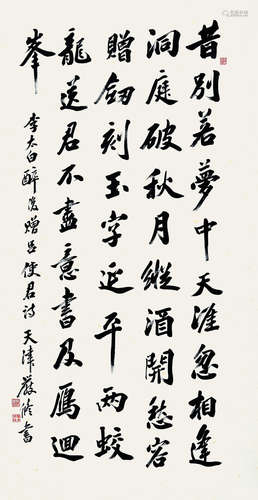 昔別若夢中天涯忽相逢
洞庭破秋月縱酒開愁容
贈劒刻玉字延平兩蛟
龍送君不盡意書及鴈迴
峯
李太白醉後贈呂使君詩 天津嚴修書